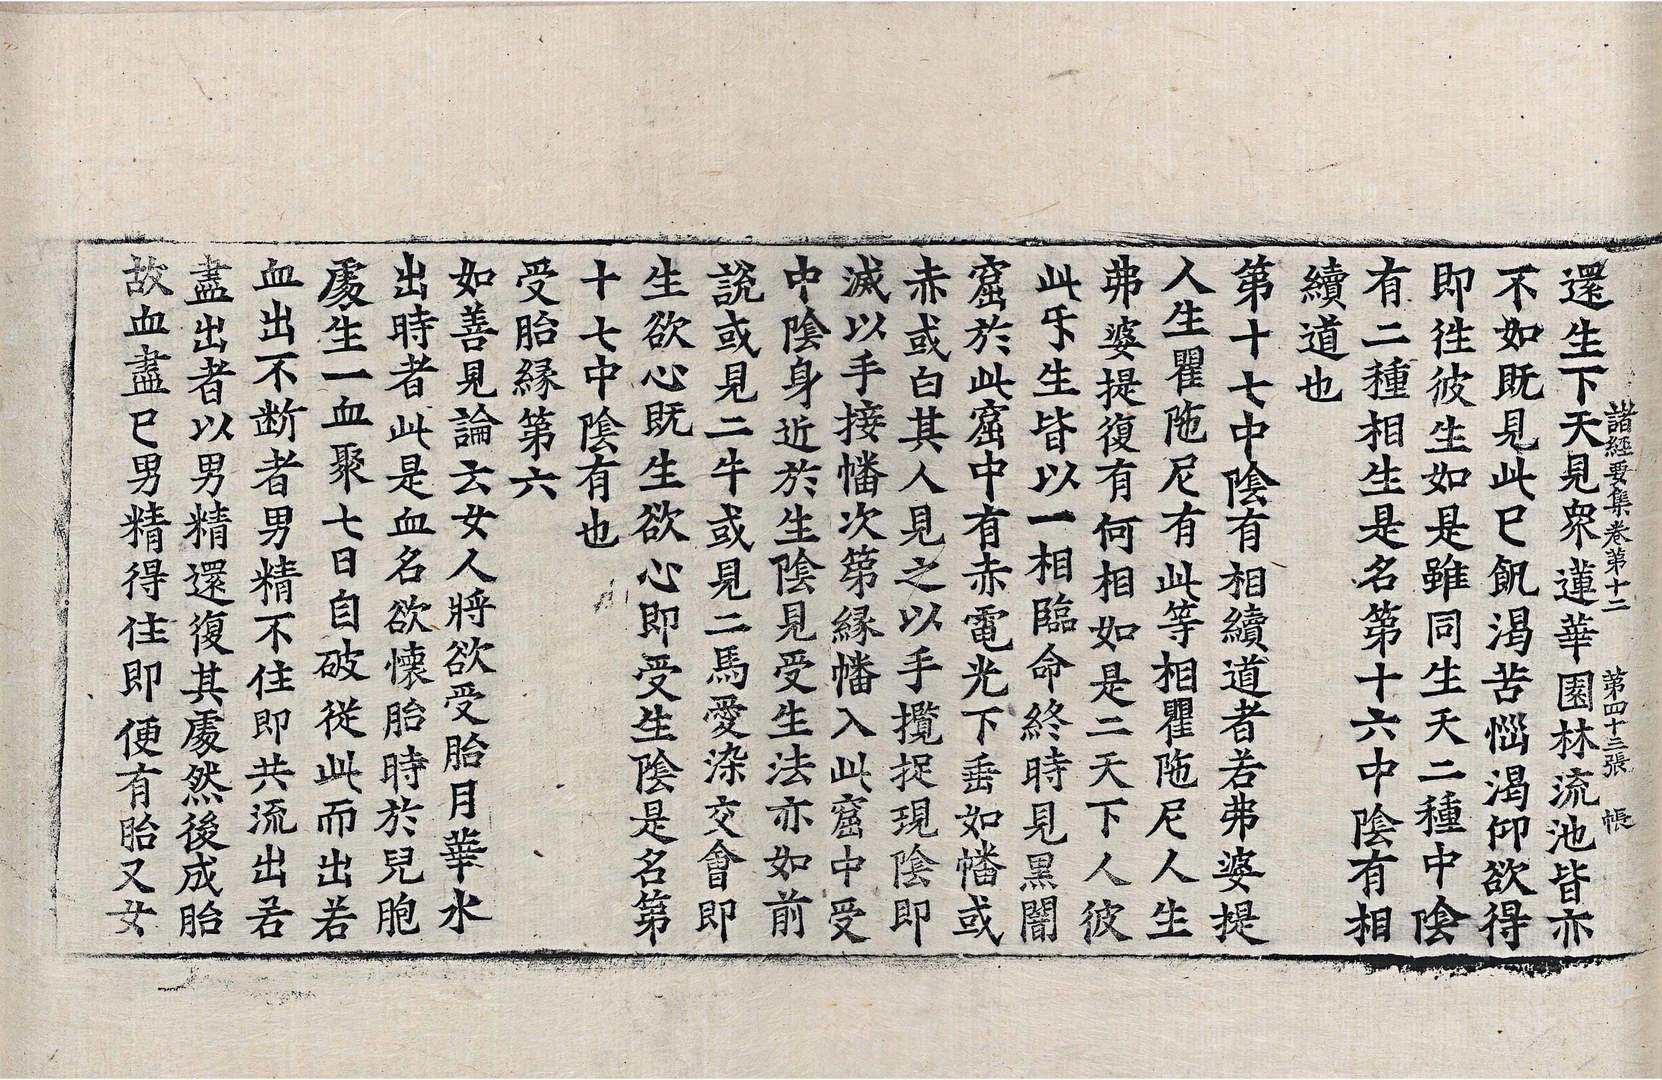 還生下天見衆蓮華園林流池皆亦
諸經要集卷第十二　第四十三張　帳
不如既見此已飢渴苦惱渴仰欲得
即往彼生如是雖同生天二種中陰
有二種相生是名第十六中陰有相
續道也
第十七中陰有相續道者若弗婆提
人生瞿陁尼有此等相瞿陁尼人生
弗婆提復有何相如是二天下人彼
此𢆯生皆以一相臨命終時見黑闇
窟於此窟中有赤電光下垂如幡或
赤或白其人見之以手攬捉現陰即
滅以手接幡次第縁幡入此窟中受
中陰身近於生陰見受生法亦如前
說或見二牛或見二馬愛染交會即
生欲心既生欲心即受生陰是名第
十七中陰有也
受胎縁第六
如善見論云女人將欲受胎月華水
出時者此是血名欲懷胎時於兒胞
處生一血聚七日自破從此而出若
血出不断者男精不住即共流出若
盡出者以男精還復其處然後成胎
故血盡已男精得住即便有胎又女